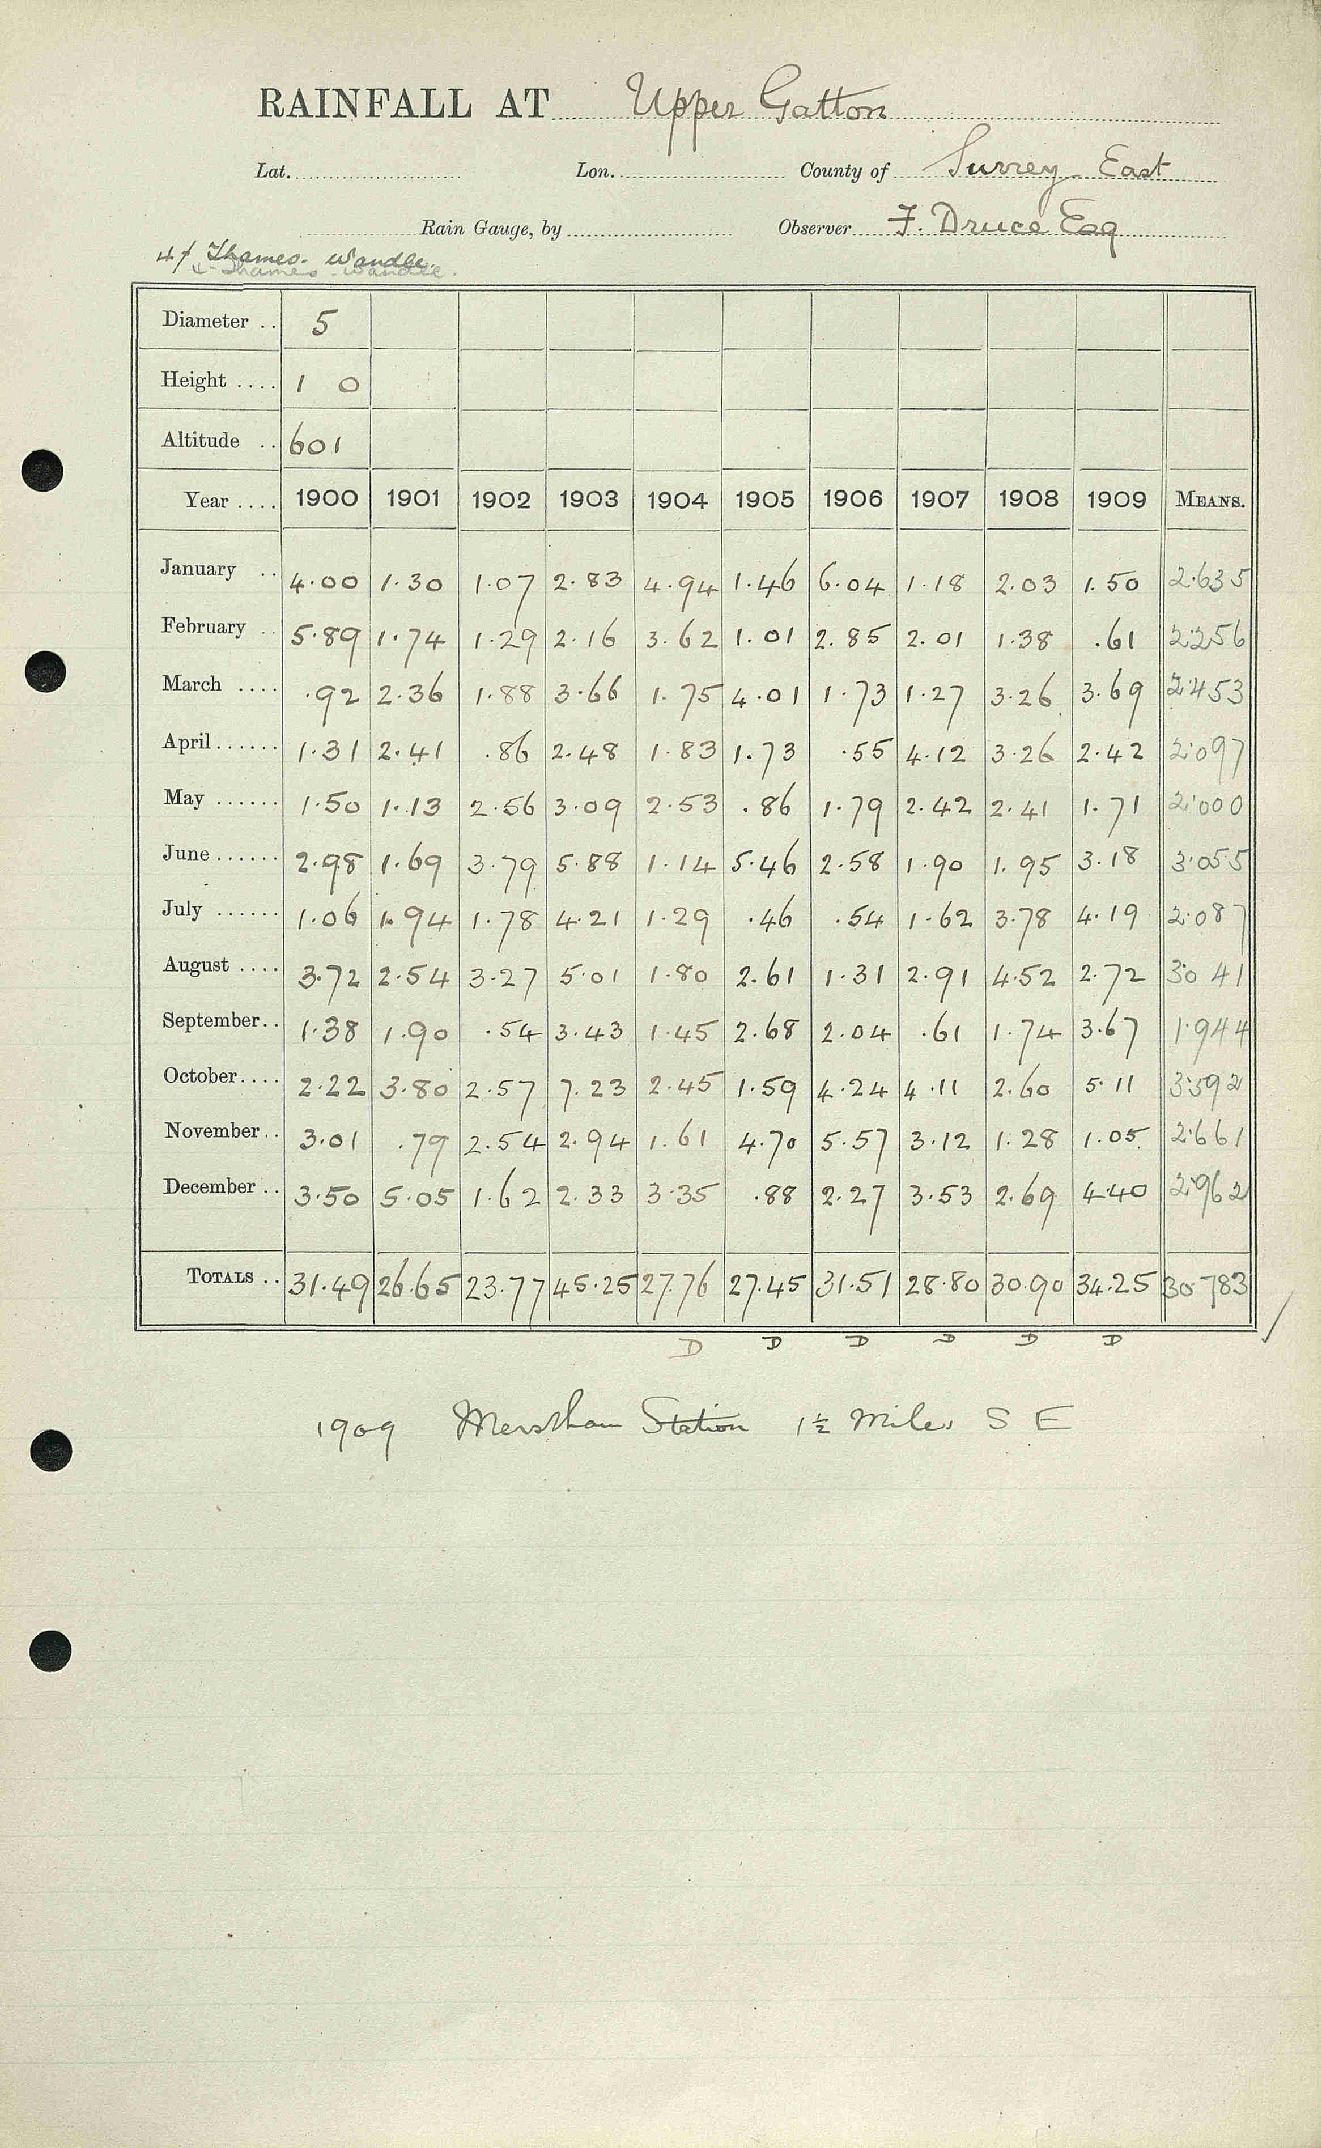 RAINFALL AT Upper Gatton
Lat. Lon. County of Surrey - East
Rain Gauge, by Observer F. Druce Esq
4f Thames - Wandle.
4 - Thames - Wandle.
Diameter .. 5
Height .... 1 0
Altitude .. 601
Year .... 1900 1901 1902 1903 1904 1905 1906 1907 1908 1909 MEANS.
January .. 4.00 1.30 1.07 2.83 4.94 1.46 6.04 1.18 2.03 1.50 2.635
February .. 5.89 1.74 1.29 2.16 3.62 1.01 2.85 2.01 1.38 .61 2.256
March .... .92 2.36 1.88 3.66 1.75 4.01 1.73 1.27 3.26 3.69 2.453
April...... 1.31 2.41 .86 2.48 1.83 1.73 .55 4.12 3.26 2.42 2.097
May ...... 1.50 1.13 2.56 3.09 2.53 .86 1.79 2.42 2.41 1.71 2.000
June...... 2.98 1.69 3.79 5.88 1.14 5.46 2.58 1.90 1.95 3.18 3.055
July ...... 1.06 1.94 1.78 4.21 1.29 .46 .54 1.62 3.78 4.19 2.087
August .... 3.72 2.54 3.27 5.01 1.80 2.61 1.31 2.91 4.52 2.72 3.041
September.. 1.38 1.90 .54 3.43 1.45 2.68 2.04 .61 1.74 3.67 1.944
October.... 2.22 3.80 2.57 7.23 2.45 1.59 4.24 4.11 2.60 5.11 3.592
November.. 3.01 .79 2.54 2.94 1.61 4.70 5.57 3.12 1.28 1.05 2.661
December .. 3.50 5.05 1.62 2.33 3.35 .88 2.27 3.53 2.69 4.40 2.962
TOTALS .. 31.49 26.65 23.77 45.25 27.76 27.45 31.51 28.80 30.90 34.25 30.783
D D D D D D
1909 Merstham Station 1½ Miles S E